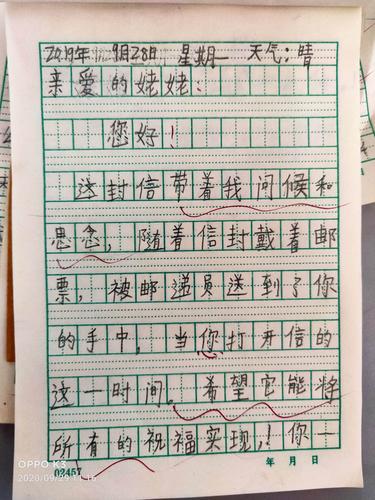 2019年 9月28日 星期一 天气：晴
亲爱的姥姥：
您好！
这封信带着我问候和
思念，随着信封戴着邮
票，被邮递员送到了你
的手中，当你打开信的
这一时间。希望它能将
所有的祝福实现，！你一
02457 年 月 日
OPPO K3
2020/09/29 11:16